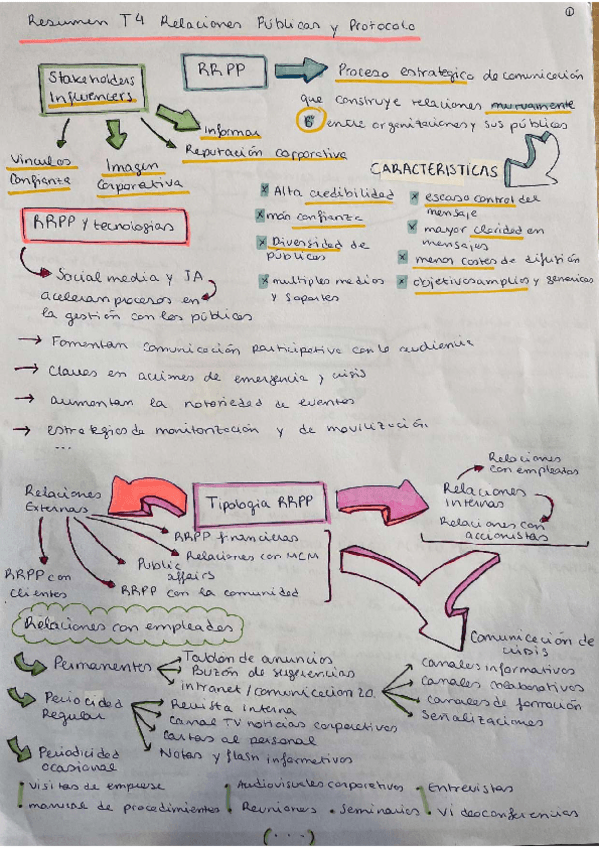 Resumen T4 Relaciones Públicas y Protocolo
1
Stakeholders
Influencers
RRPP
Proceso estratégico de comunicación
que construye relaciones mutuamente
entre organizaciones y sus públicos
Informar
Reputación corporativa
Vínculos
Confianza
Imagen
Corporativa
CARACTERISTICAS
Alta credibilidad
más confianza
Diversidad de
públicos
multiples medios
y soportes
escaso control del
mensaje
mayor claridad en
mensajes
menor costes de difusión
objetivos amplios y genericos
RRPP y tecnologias
Social media y IA
aceleran procesos en
la gestión con los públicos
→ Fomentan comunicación participativa con la audiencia
→ Claves en acciones de emergencia y crisis
→ aumentan la notoriedad de eventos
→ estrategias de monitorización y de movilización.
...
Tipologia RRPP
Relaciones
Externas
RRPP financieras
Relaciones con MCM
Public
affairs
RRPP con la comunidad
RRPP con
clientes
Relaciones
con empleados
Relaciones
internas
Relaciones con
accionistas
Comunicación de
crisis
Relaciones con empleados
Permanentes
Tablón de anuncios
Buzón de sugerencias
intranet/comunicacion 2.0.
canales informativos
canales colaborativos
canales de formación
Señalizaciones
Periocidad
Regular
Revista interna
Canal TV noticias corporativas
Cartas al personal
Notas y flash informativos
Periodicidad
ocasional
· visitas de empresa
· manual de procedimientos
· Audiovisuales corporativos
· Reuniones · Seminarios
· Entrevistas
· Videoconferencias
(...)